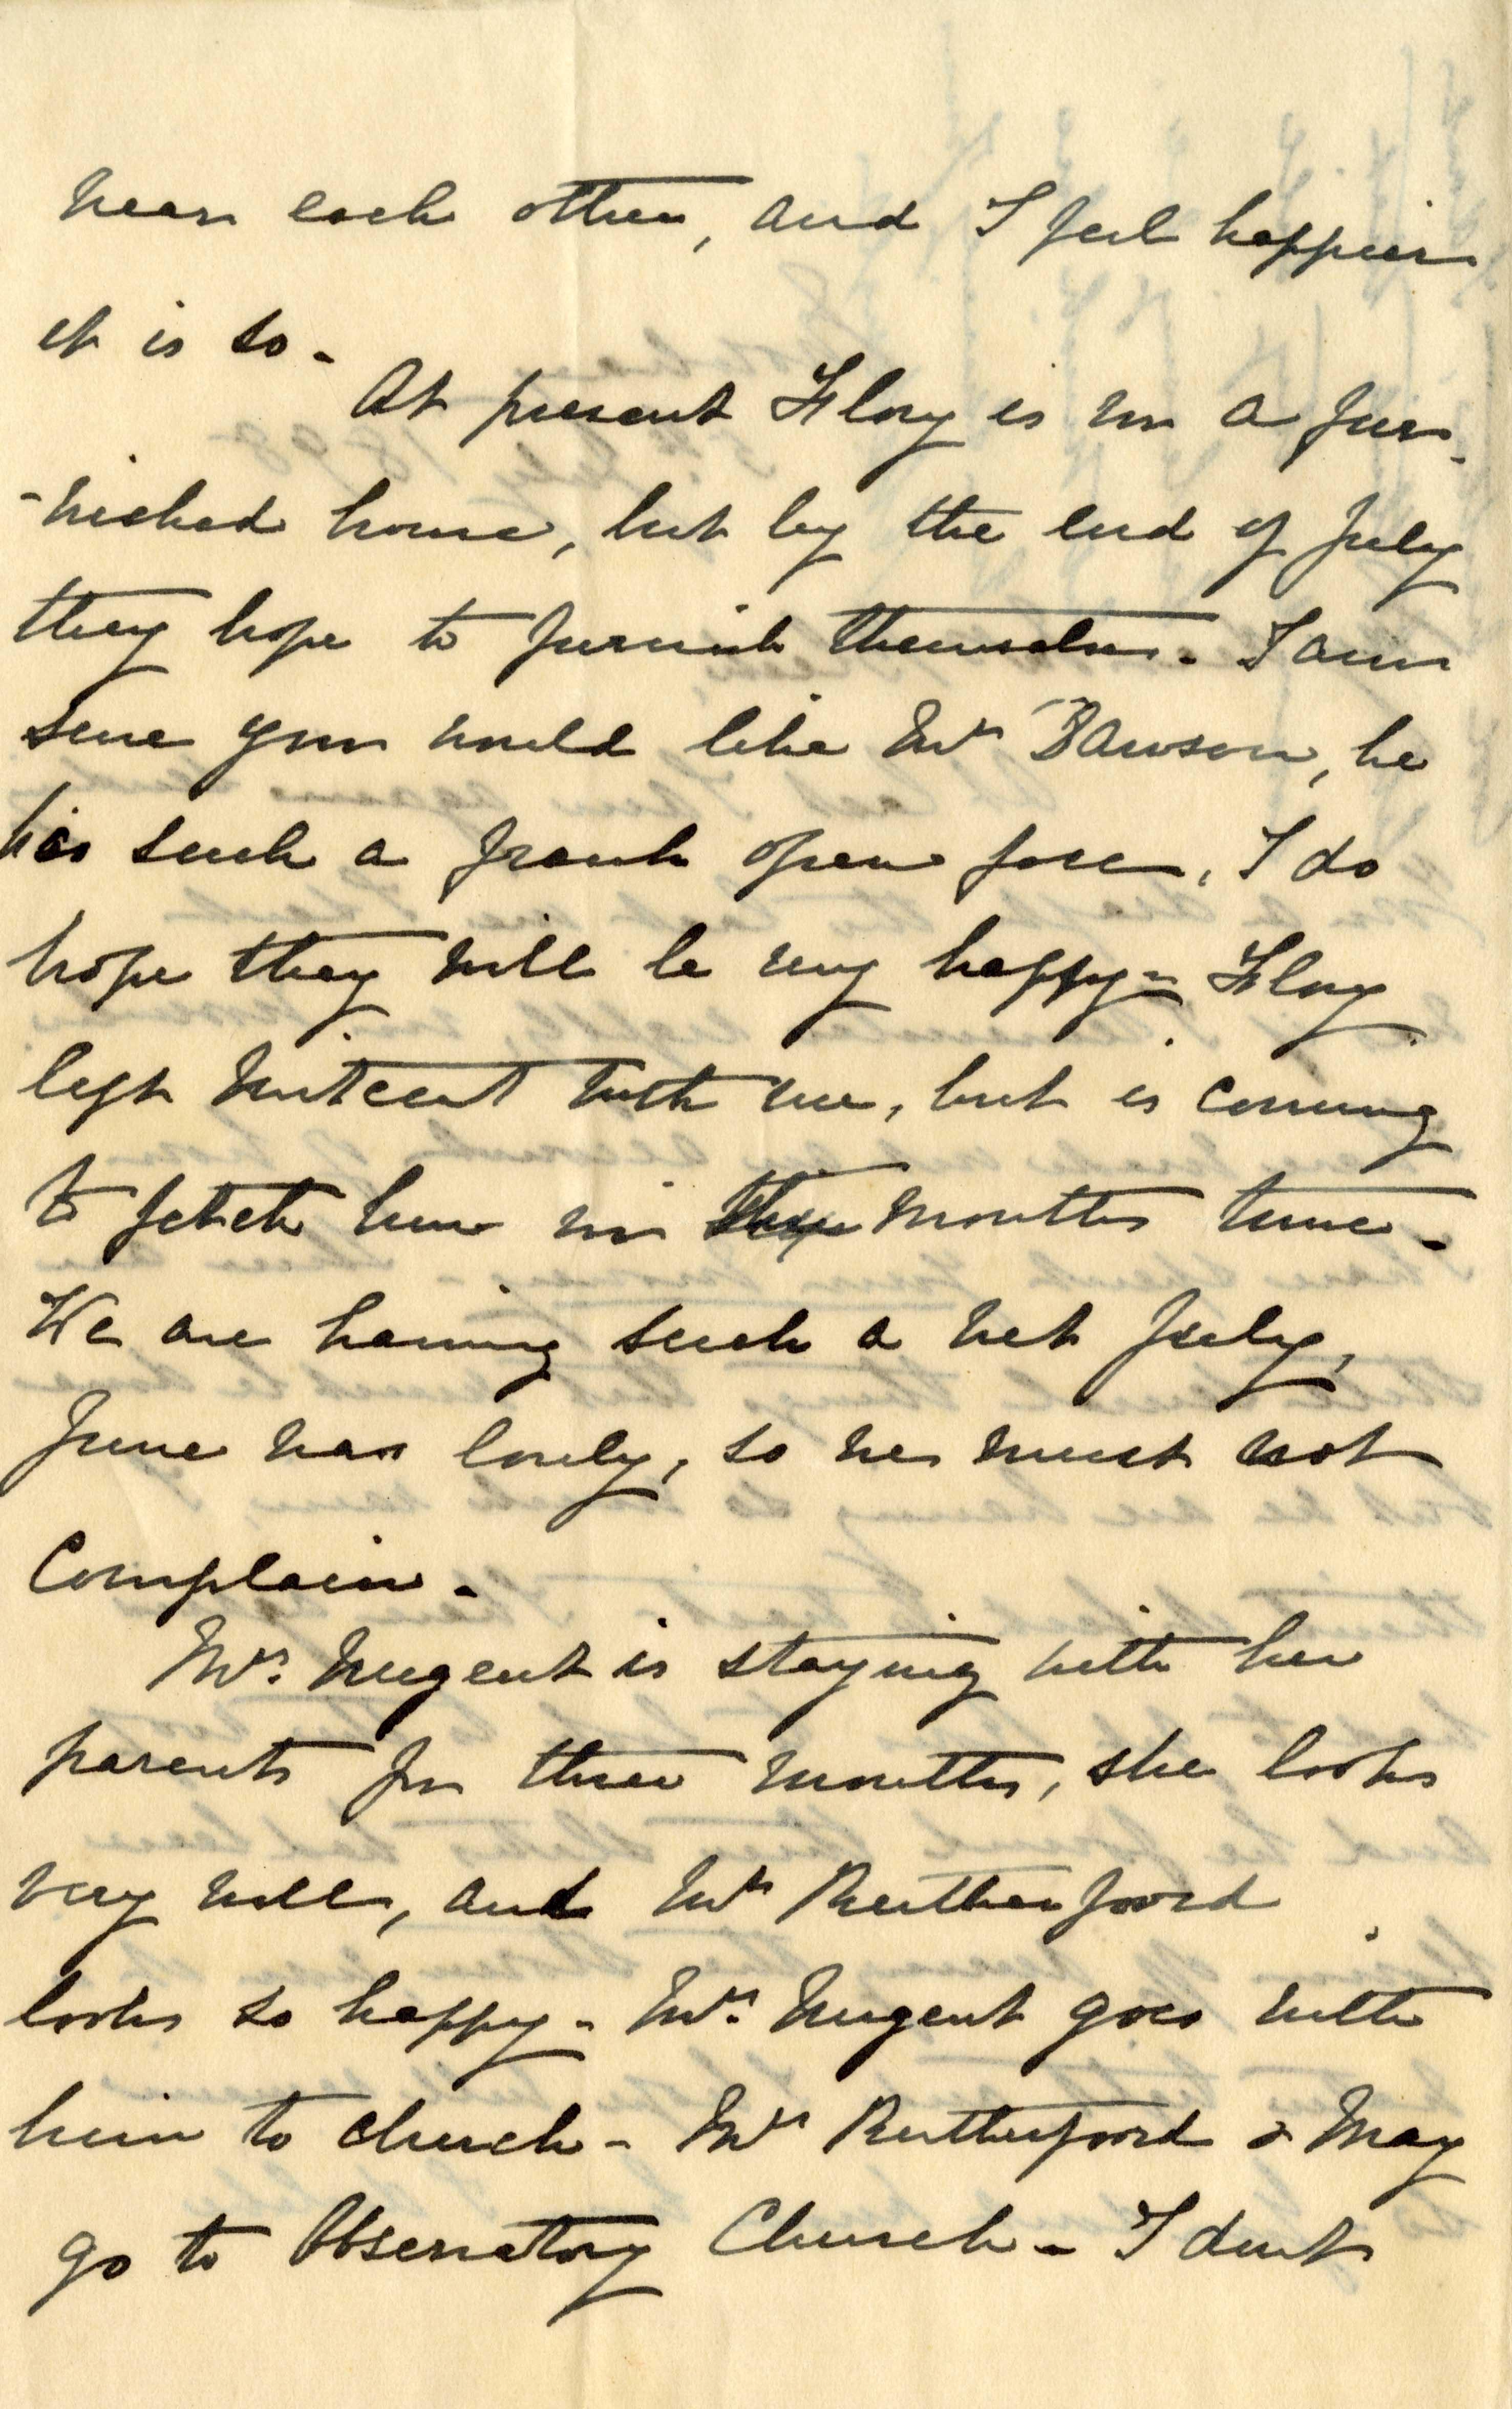 near each other, and I feel happier
it is so -
At present Flory is in a fur-
-nished house, but by the end of July
they hope to furnish themselves. I am
sure you would like Mr Dawson, he
has such a frank open face, I do
hope they will be very happy - Flory
left with me, but is coming
to fetch him in months time -
We are having such a wet July,
June was lovely, so we must not
Complain -
Mrs. Nugent is staying with her
parents for three months, she looks
very well, and Mr Rutherfoord
looks so happy - Mrs. Nugent goes with
him to church - Mrs Rutherfoord & May
go to Observatory Church - I dont